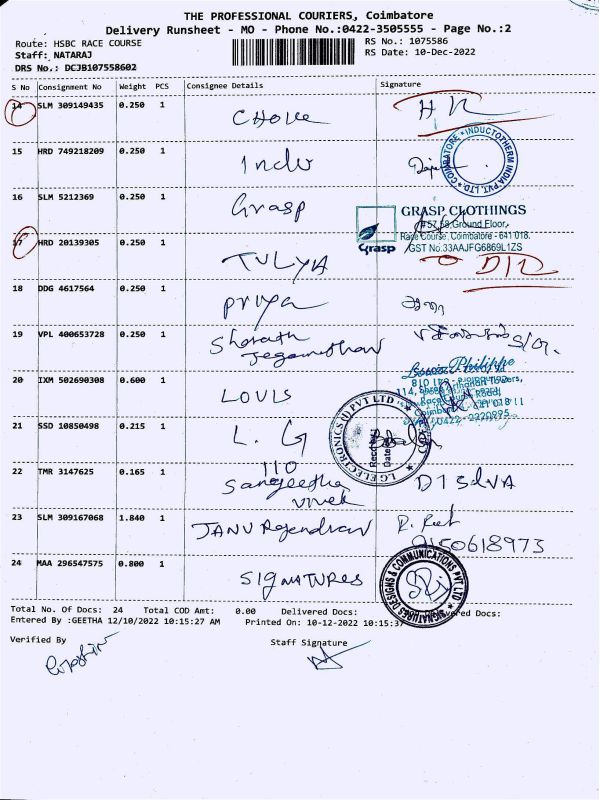 THE PROFESSIONAL COURIERS, Coimbatore
Delivery Runsheet - MO - Phone No.:0422-3505555 - Page No.:2
Route: HSBC RACE COURSE
RS No.: 1075586
Staff: NATARAJ
RS Date: 10-Dec-2022
DRS No.: DCJB107558602
S No Consignment No Weight PCS Consignee Details Signature
14 SLM 309149435 0.250 1 CHOICE
15 HRD 749218209 0.250 1 Indu
COIMBATORE * INDUCTOTHERM INDIA PVT. LTD. *
16 SLM 5212369 0.250 1 Grasp
Grasp
GRASP CLOTHINGS
#57,58, Ground Floor,
Race Course, Coimbatore - 641 018.
GST No.33AAJFG6869L1ZS
17 HRD 20139305 0.250 1 TULYA
18 DDG 4617564 0.250 1 Priya
19 VPL 400653728 0.250 1 Sharath
Jeganathan
20 IXM 502690308 0.600 1 LOUIS
Louis Philippe
21 SSD 10850498 0.215 1 L. G
LG ELECTRONICS (I) PVT LTD
110
22 TMR 3147625 0.165 1 Sangeetha
vivek
D I SilvA
23 SLM 309167068 1.840 1 JANU Rajendran
9150618973
24 MAA 296547575 0.800 1 SIGNATURES
SIGNATURES DESIGNS & COMMUNICATIONS PVT LTD
Total No. Of Docs: 24 Total COD Amt: 0.00 Delivered Docs:
Entered By :GEETHA 12/10/2022 10:15:27 AM Printed On: 10-12-2022 10:15:37
Verified By
Staff Signature